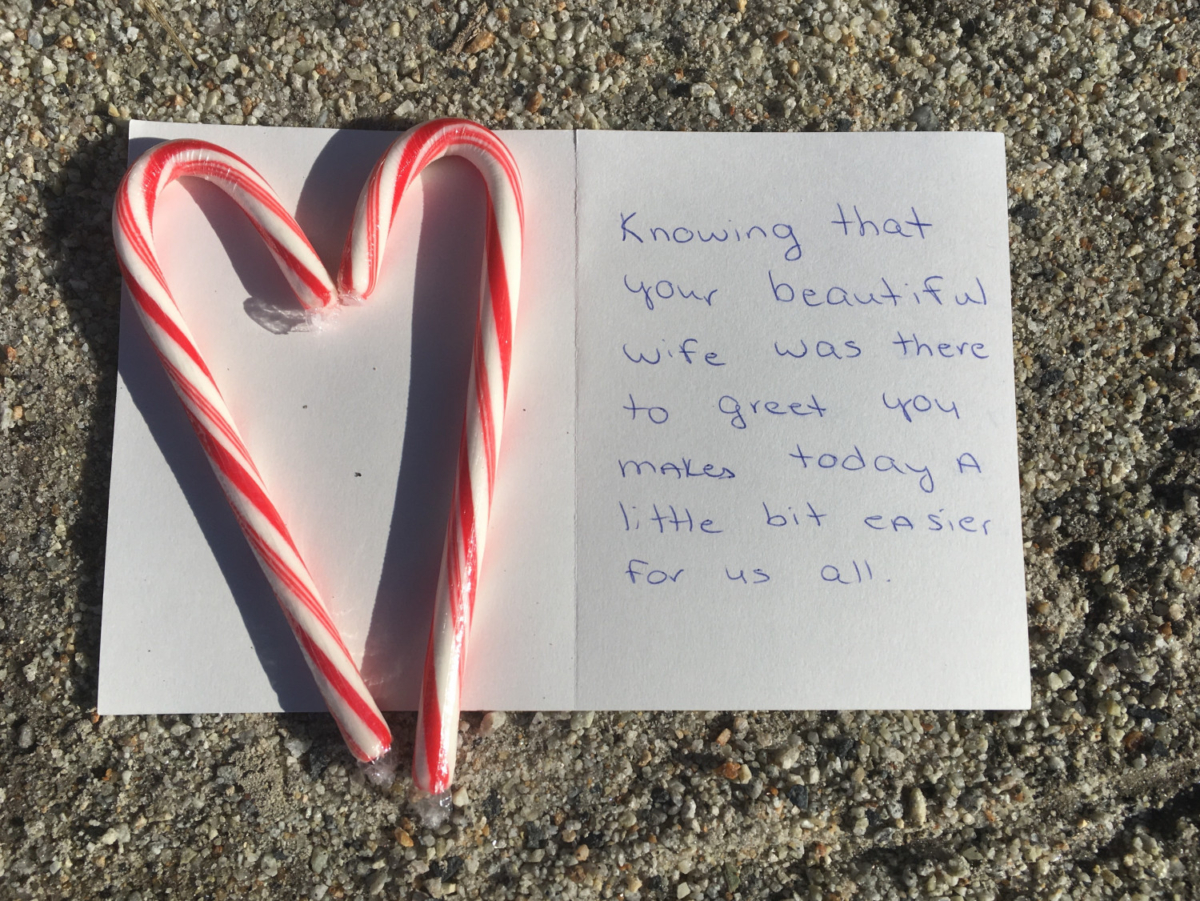 Knowing that
your beautiful
wife was there
to greet you
makes today A
little bit easier
for us all.